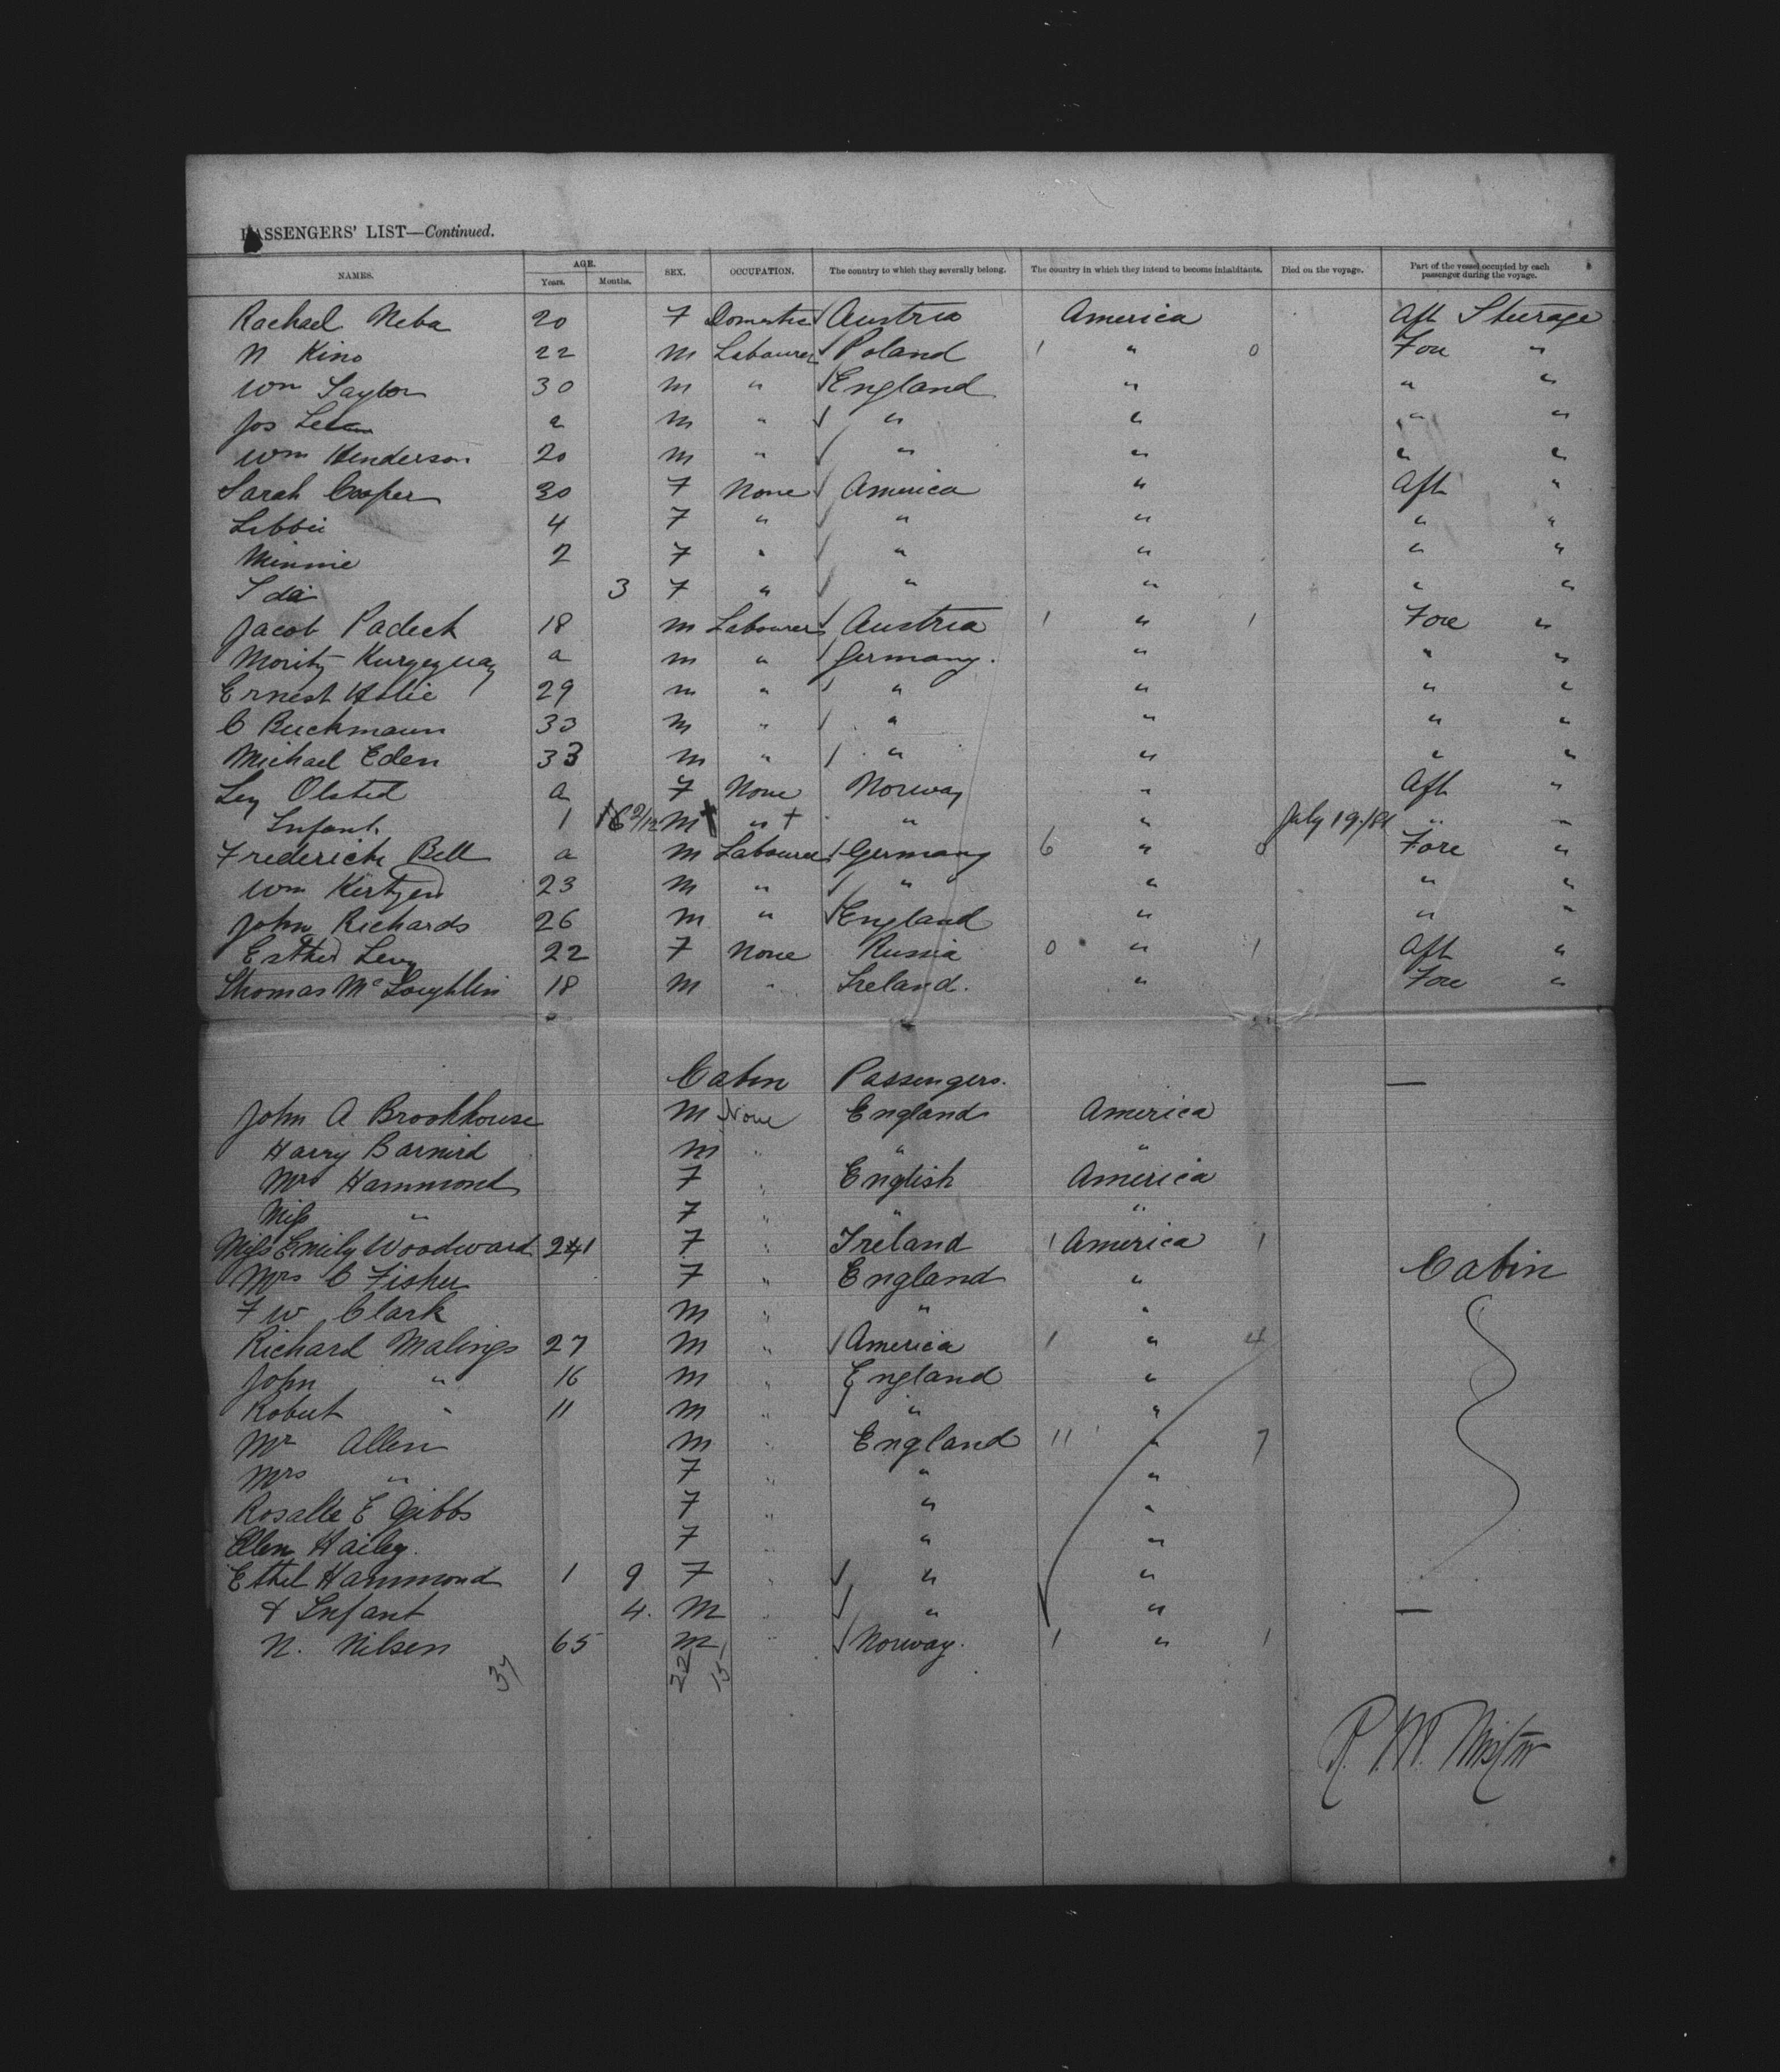 PASSENGERS' LIST—Continued.
NAMES. AGE. SEX. OCCUPATION. The country to which they severally belong. The country in which they intend to become inhabitants. Died on the voyage. Part of the vessel occupied by each passenger during the voyage.
Years. Months.
Rachael Neba 20 F Domestic Austria America Aft Steerage
N Kino 22 M Labourer Poland 1 " 0 Fore "
Wm Taylor 30 M " England " " "
Jos a M " " " " "
Wm Henderson 20 M " " " " "
Sarah Cooper 30 F None America " Aft "
Libbie 4 F " " " " "
Minnie 2 F " " " " "
Ida 3 F " " " " "
Jacob Padeck 18 M Labourer Austria 1 " 1 Fore "
Moritz a M " Germany. " " "
Ernest 29 M " " " " "
C Buckmann 33 M " " " " "
Michael Eden 33 M " " " " "
Olsted a F None Norway " Aft "
Infant. 1 M † " + " " July 19/81 " "
Frederick Bell a M Labourer Germany 6 " 0 Fore "
Wm Kertzen 23 M " " " " "
John Richards 26 M " England " " "
Esther Levy 22 F None Russia 0 " 1 Aft "
Thomas McLoughlin 18 M " Ireland. " Fore "
Cabin Passengers. —
John A Brookhouse M None England America
Harry Barnird M " " "
Mrs Hammond F " English America
Miss " F " " "
Miss Emily Woodward 21 F " Ireland 1 America 1
Mrs C Fisher F " England " Cabin
F W Clark M " " "
Richard Malings 27 M " America 1 " 4
John " 16 M " England "
Robert " 11 M " " "
Mr Allen M " England 11 " 7
Mrs " F " " "
Rosalie E Gibbs F " " "
Ellen Hailey. F " " "
Ethel Hammond 1 9 F " " "
& Infant 4. M " " " —
N. Nilsen 65 M " Norway. 1 " 1
37 22 15